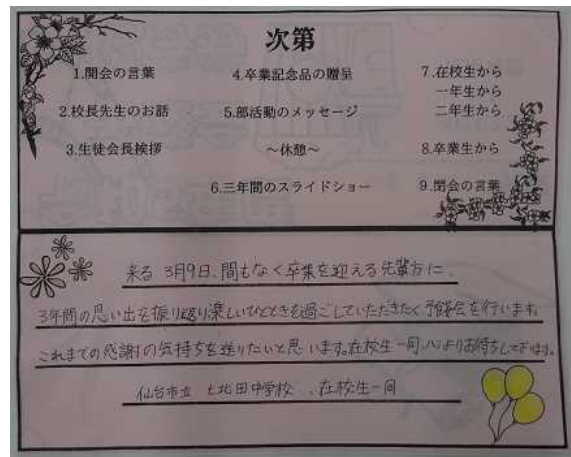 次第
1.開会の言葉
2.校長先生のお話
3.生徒会長挨拶
4.卒業記念品の贈呈
5.部活動のメッセージ
～休憩～
6.三年間のスライドショー
7.在校生から
一年生から
二年生から
8.卒業生から
9.閉会の言葉
来る 3月9日、間もなく卒業を迎える先輩方に、
3年間の思い出を振り返り楽しいひとときを過ごしていただきたく予餞会を行います。
これまでの感謝の気持ちを送りたいと思います。在校生一同、心よりお待ちしております。
仙台市立 七北田中学校 、在校生一同